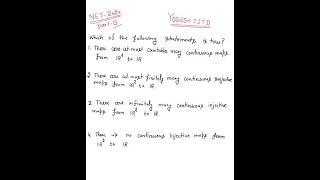 NET-2020
part-B
YOGESH IITD
Which of the following statements is true?
1. There are at most countable many continuous maps
from IR² to IR.
2. There are at most finitely many continuous surjective
maps from IR² to IR.
3. There are infinitely many continuous injective
maps from IR² to IR.
4. There is no continuous bijective maps from
IR² to IR